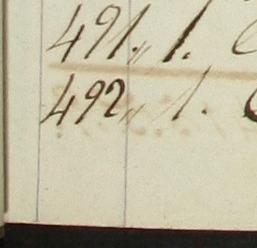 491 " 1.
492 " 1.